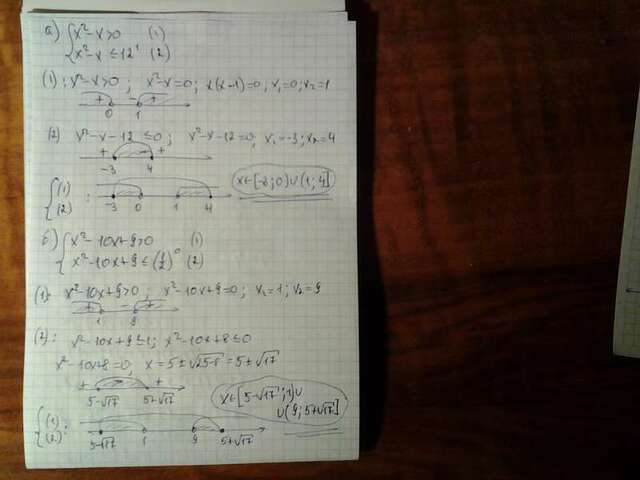 а) { x²-x>0 (1)
x²-x≤12¹ (2)
(1): x²-x>0; x²-x=0; x(x-1)=0; x₁=0; x₂=1
+ - +
0 1
(2) x²-x-12≤0; x²-x-12=0, x₁=-3; x₂=4
+ - +
-3 4
{ (1)
(2) :
-3 0 1 4
x∈[-3;0)∪(1;4]
б) { x²-10x+9>0 (1)
x²-10x+9≤(1/2)⁰ (2)
(1): x²-10x+9>0; x²-10x+9=0; x₁=1; x₂=9
+ - +
1 9
(2): x²-10x+9≤1; x²-10x+8≤0
x²-10x+8=0, x=5±√25-8=5±√17
+ - +
5-√17 5+√17
x∈[5-√17;1)∪
∪(9;5+√17]
{ (1)
(2) :
5-√17 1 9 5+√17